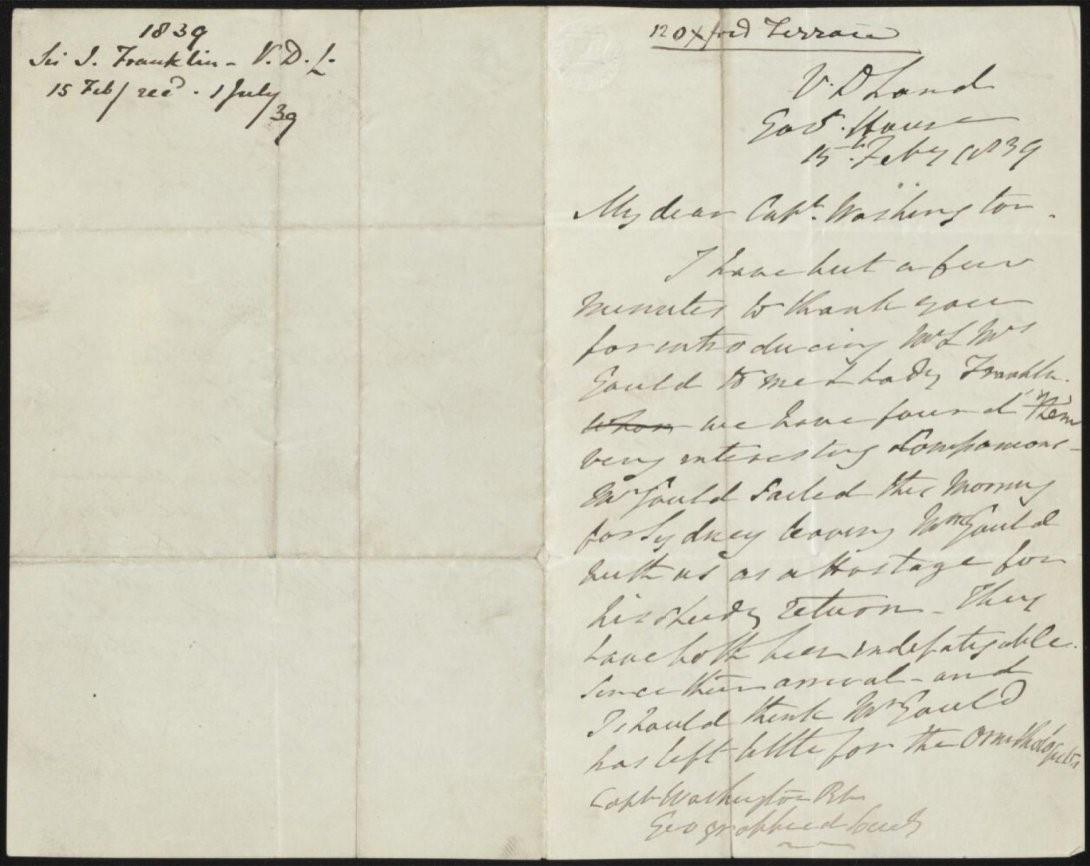 1839
Sir J. Franklin - V.D.L.
15 Feb/ recd. 1 July
/39
12 Oxford Terrace
V. D Land
Govt. House
15th Feby 1839
My dear Capt. Washington.
I have but a few
minutes to thank you
for introducing Mr & Mrs
Gould to me & Lady Franklin.
whom we have found them
very interesting Companions -
Mr Gould sailed this Morning
for Sydney leaving Mrs Gould
with us as a Hostage for
his speedy return - They
have both been indefatigable
since their arrival - and
I should think Mr Gould
has left little for the Ornithologists
Capt Washington RN
Geographical Society